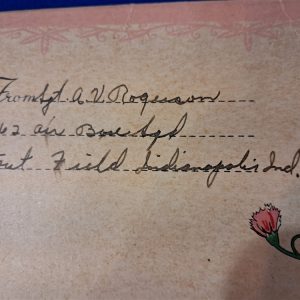 From Sgt. A. V. Rogerson
62 Air Base Sqd
Field Indianopolis Ind.